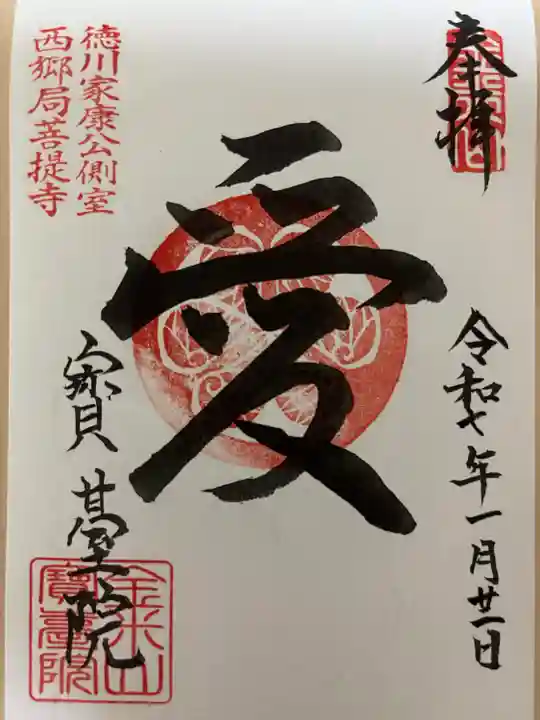 奉拝
金米山
令和七年一月廿一日
愛
徳川家康公側室
西郷局菩提寺
寳臺院
金米山
寶臺院